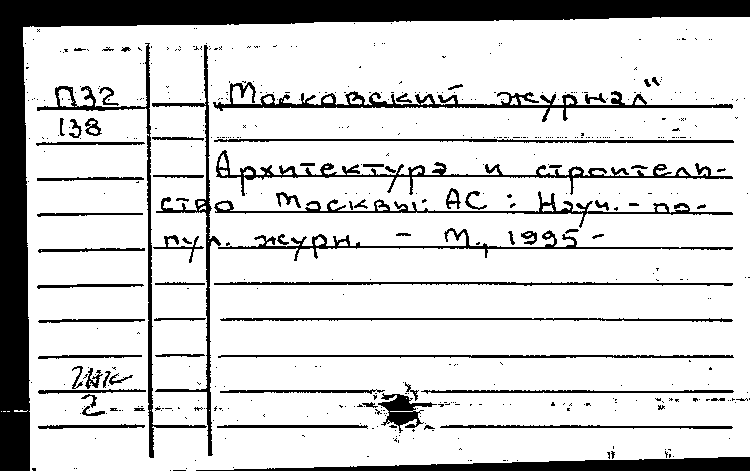 П32
„Московский журнал"
138
Архитектура и строитель-
ство Москвы: АС : Науч.-по-
пул. журн. - М., 1995 -
2